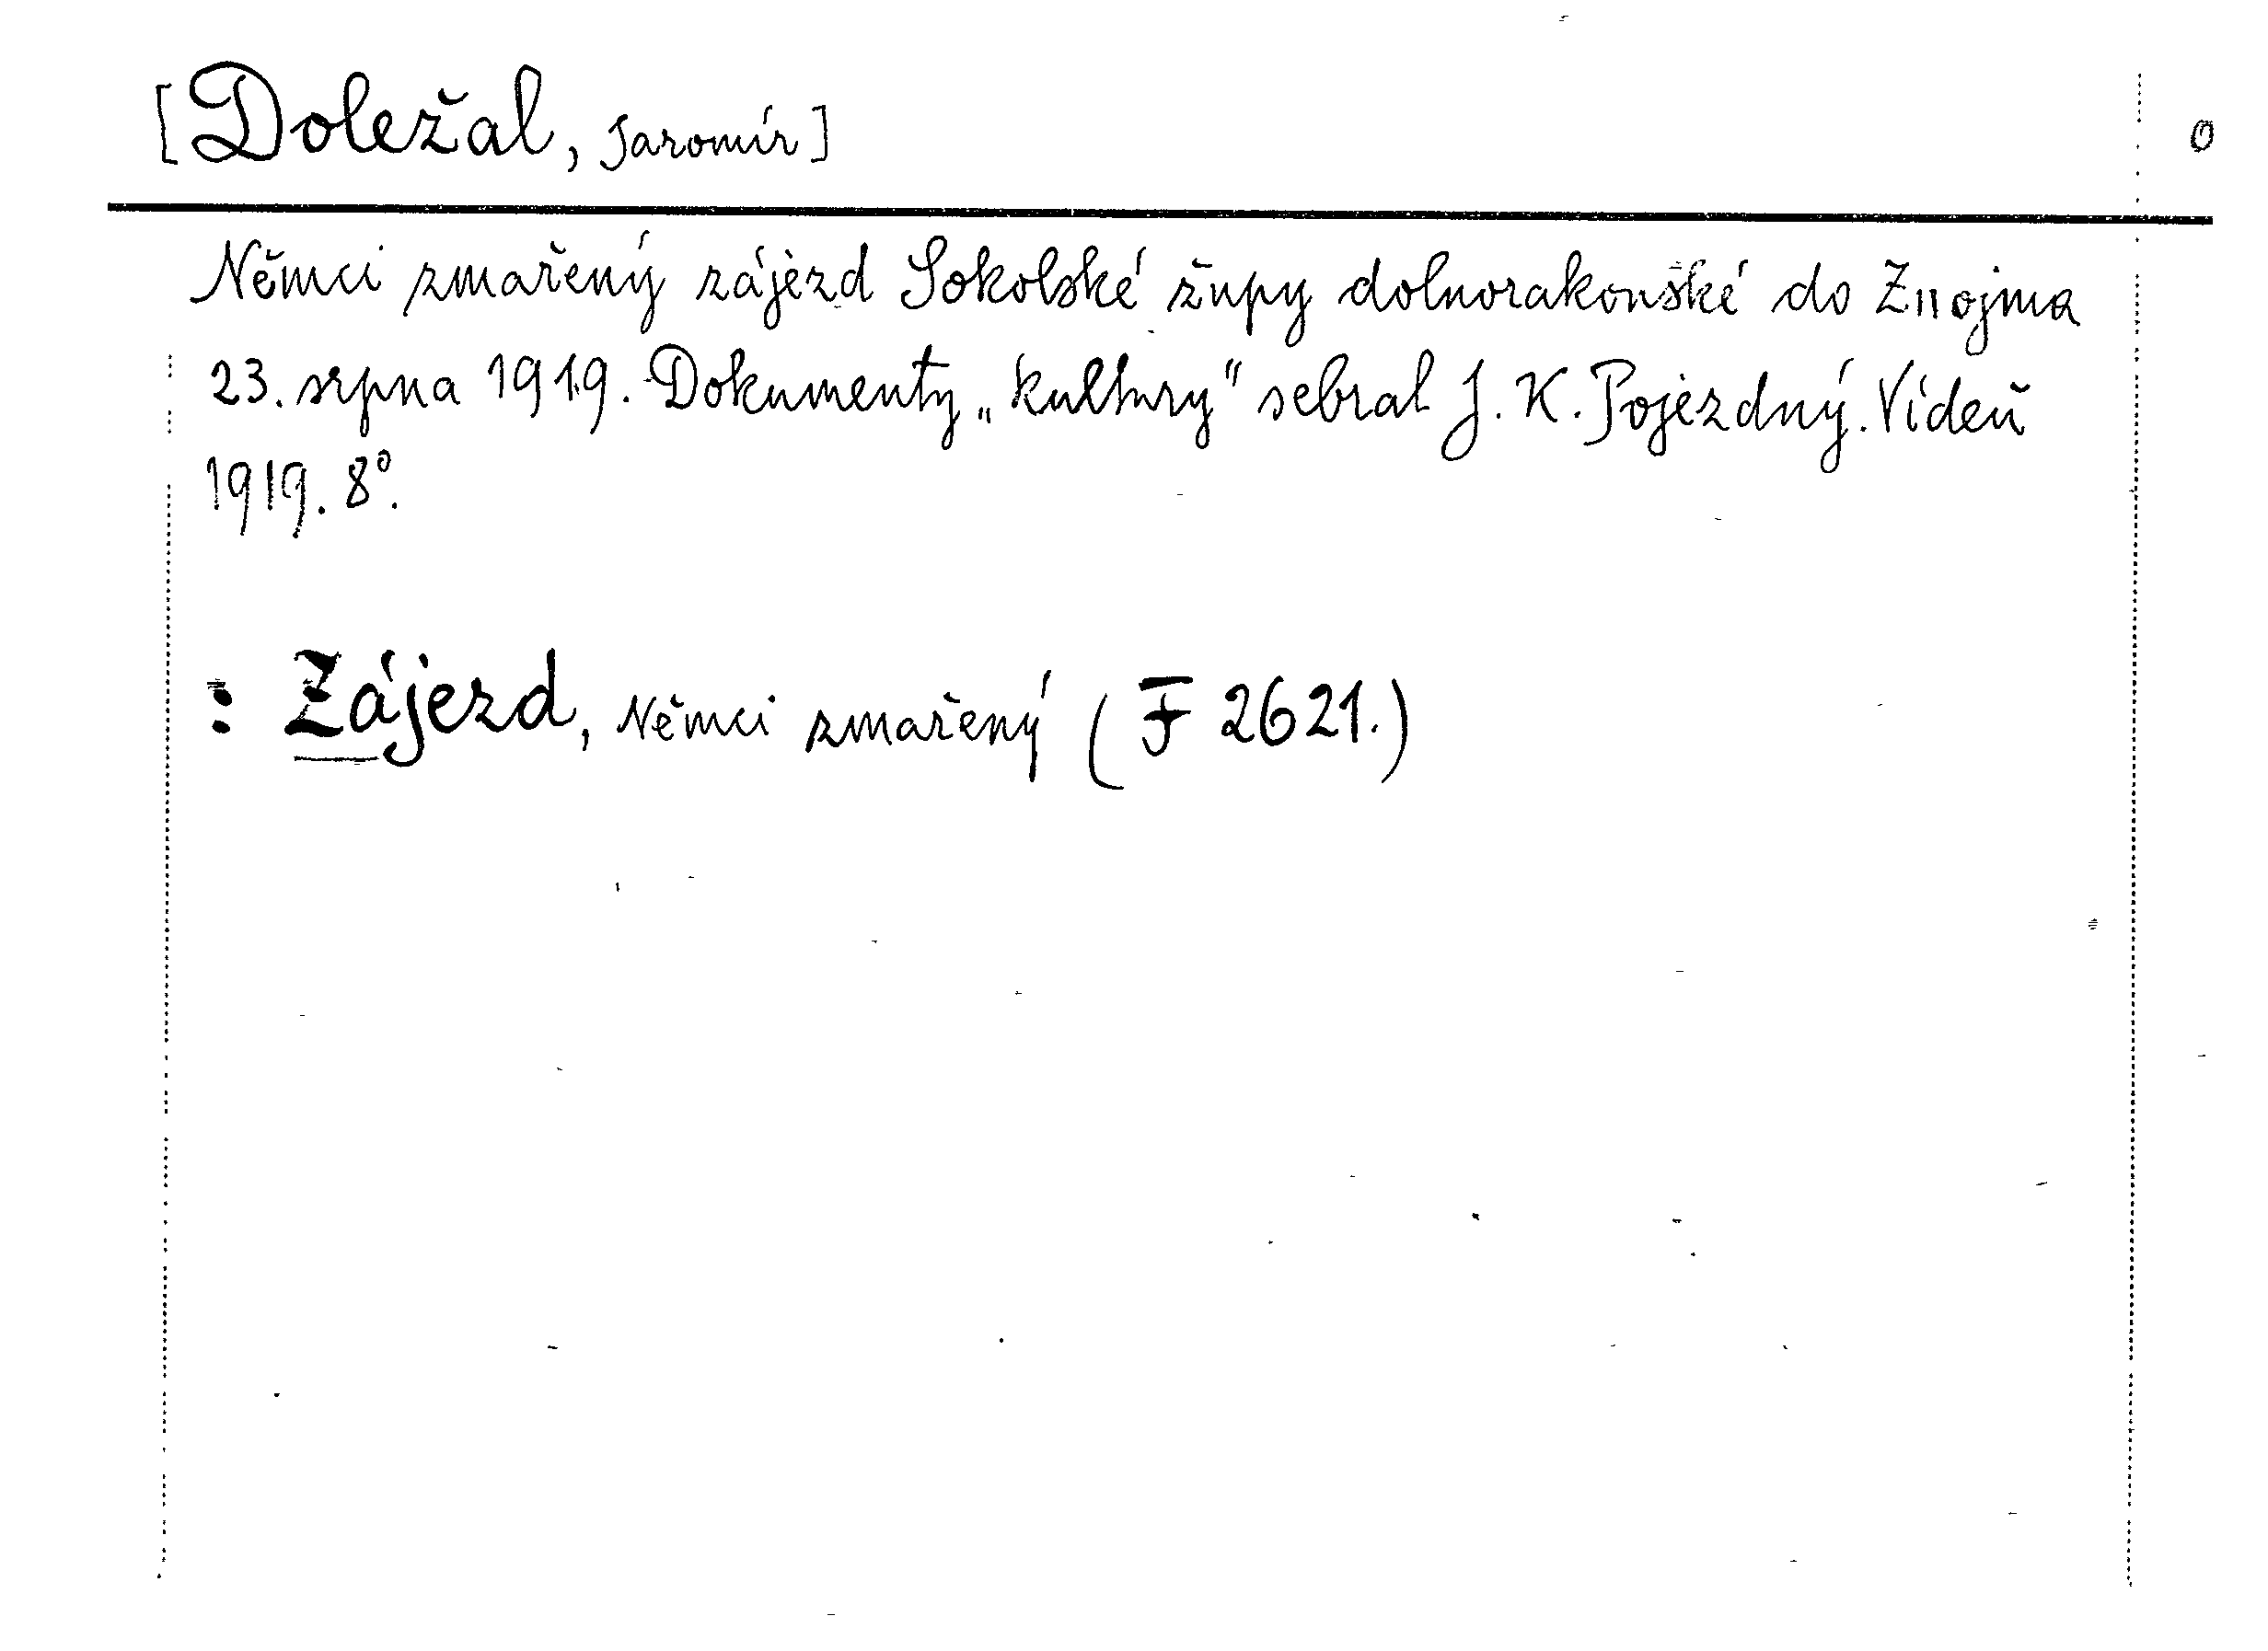 [Doležal, Jaromír]
0
Němci zmařený zájezd Sokolské župy dolnorakouské do Znojma
23. srpna 1919. Dokumenty „kultury" sebral J. K. Pojezdný. Vídeň
1919. 8°.
: Zájezd, Němci zmařený (F 2621.)